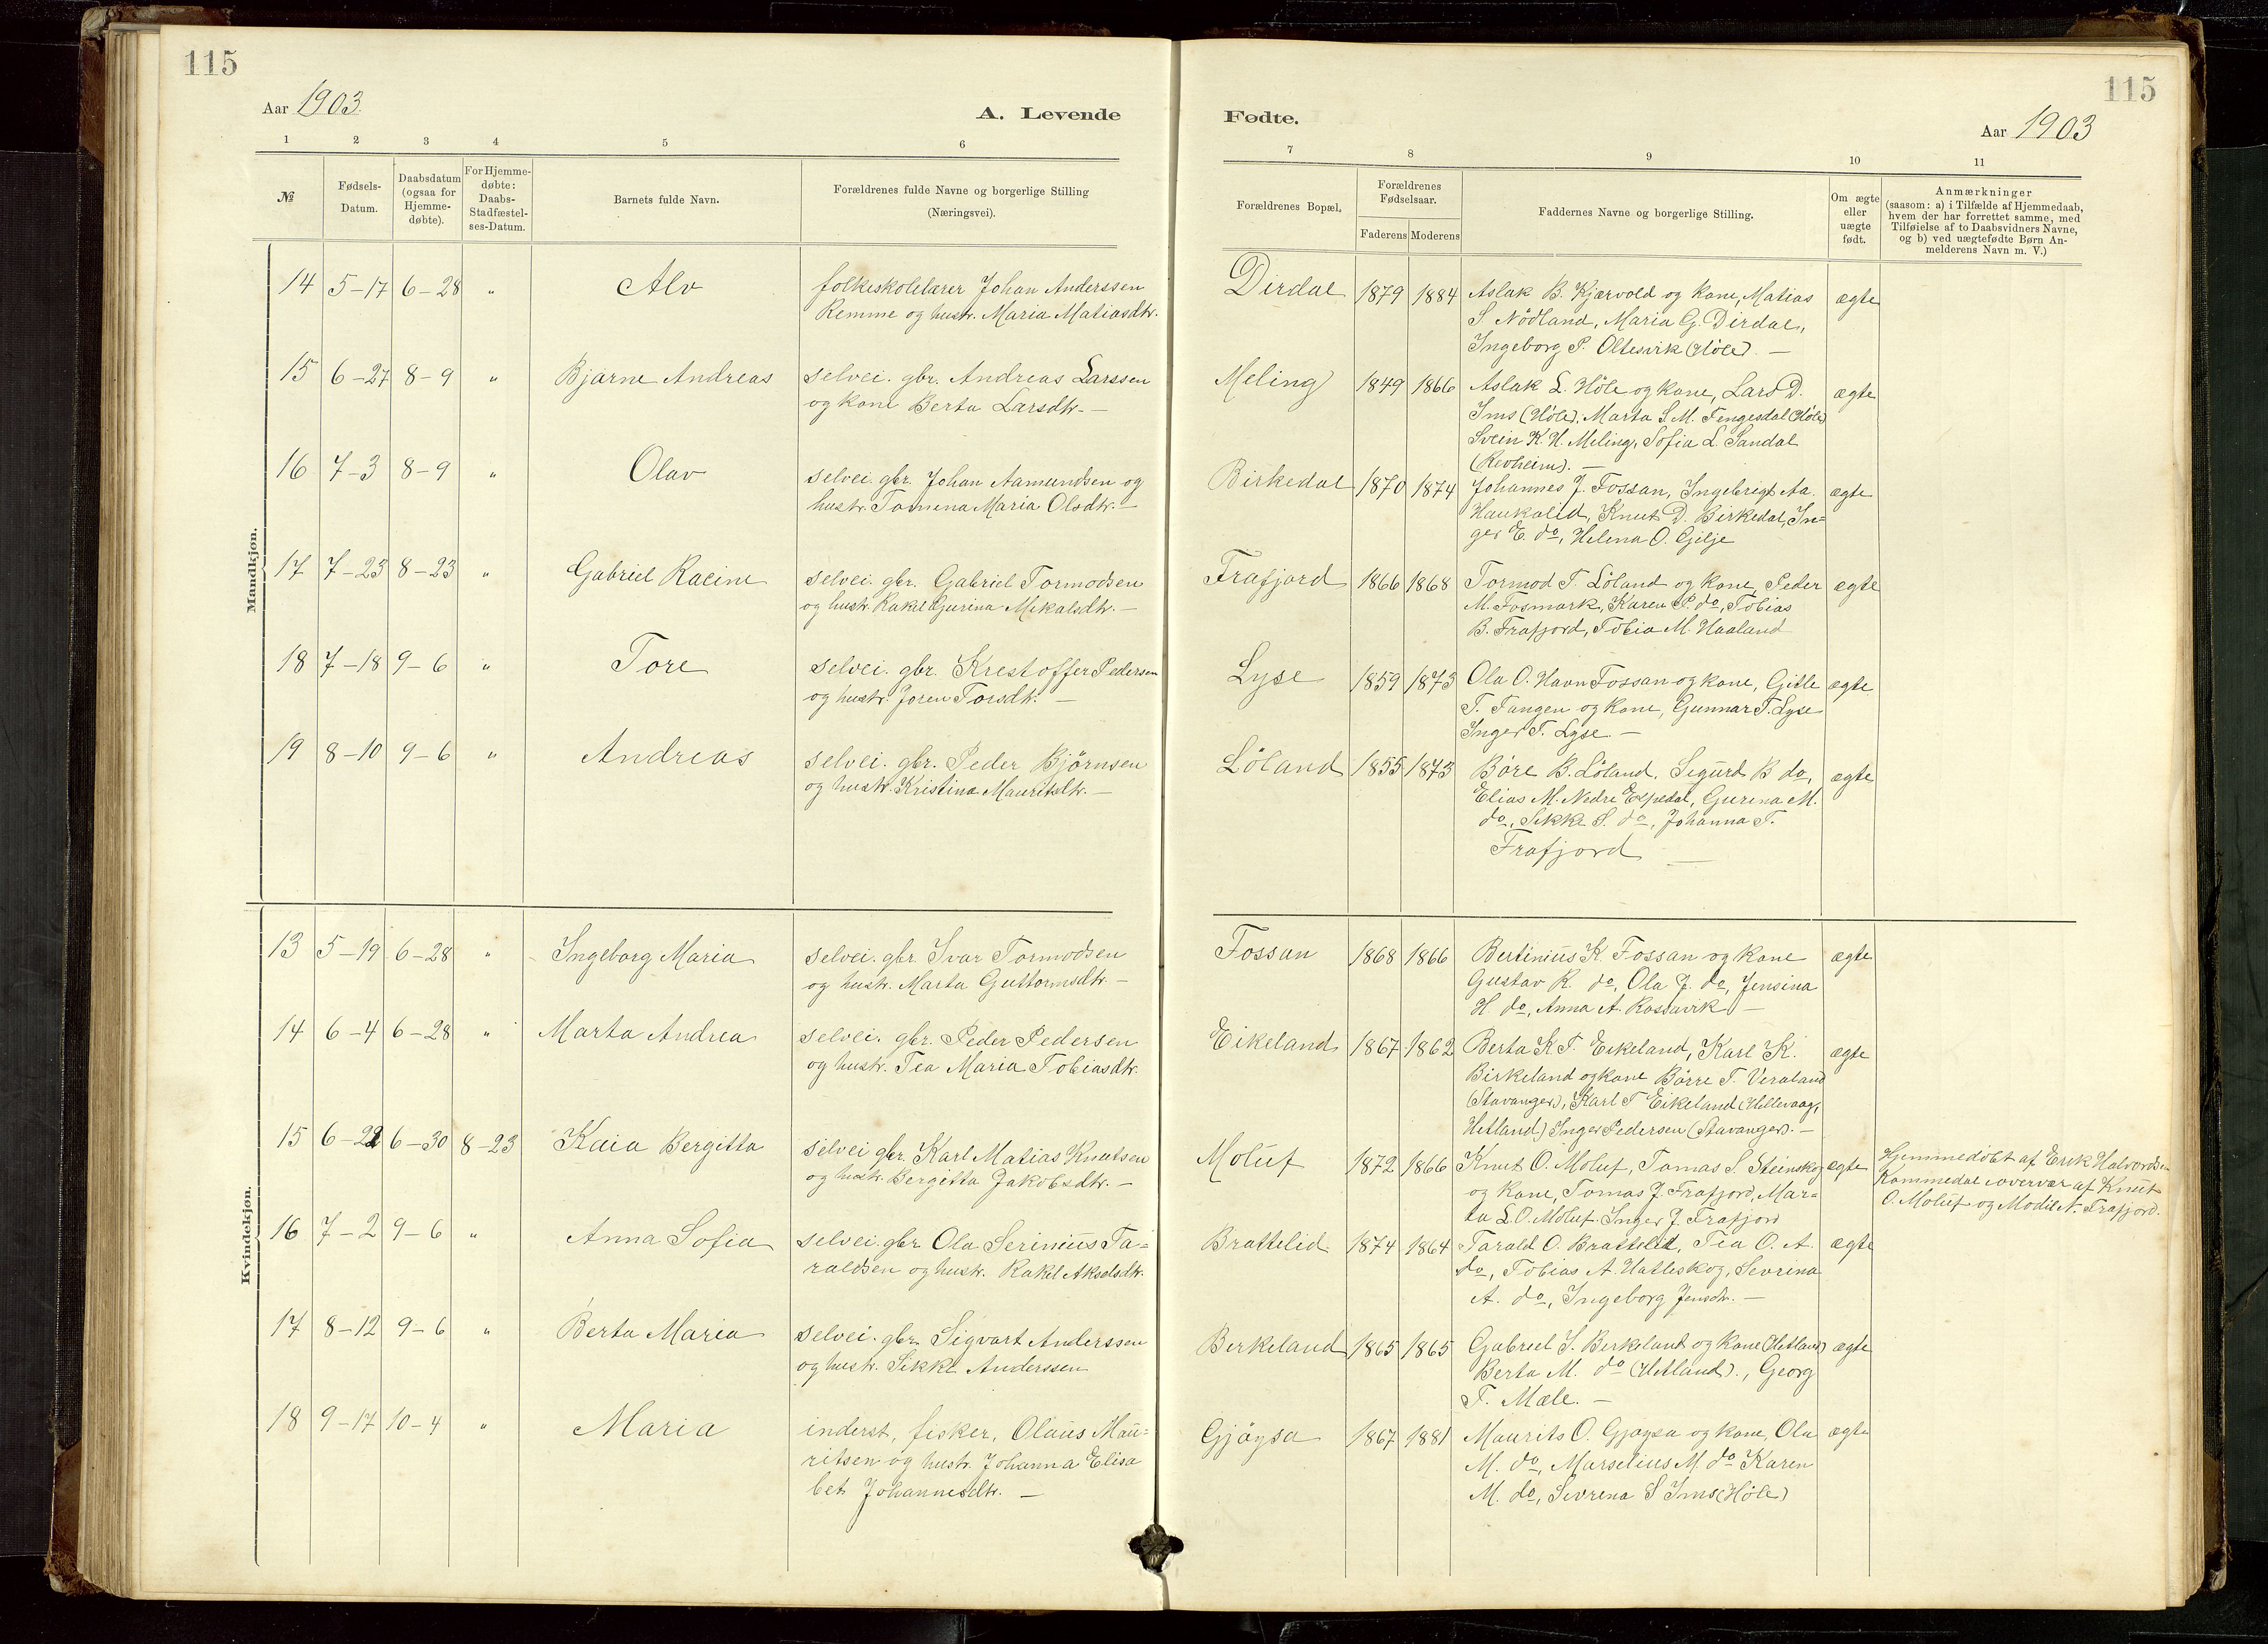 115
Aar 1903.
A. Levende
1 2 3 4 5 6
№
Fødsels-
Datum.
Daabsdatum
(ogsaa for
Hjemme-
døbte).
For Hjemme-
døbte:
Daabs-
Stadfæstel-
ses-Datum.
Barnets fulde Navn.
Forældrenes fulde Navne og borgerlige Stilling
(Næringsvei).
Mandkjøn.
14 5-17 6-28 " Alv folkeskolelærer Johan Anderssen
Remme og hustr. Maria Matiasdtr.
15 6-27 8-9 " Bjarne Andreas selvei. gbr. Andreas Larssen
og kone Berta Larsdtr. —
16 7-3 8-9 " Olav selvei. gbr. Johan Aamundsen og
hustr. Tomena Maria Olsdtr. —
17 7-23 8-23 " Gabriel Racine selvei. gbr. Gabriel Tormodsen
og hustr. Rakel Gurina Mikalsdtr. —
18 7-18 9-6 " Tore selvei. gbr. Krestoffer Pedersen
og hustr. Joren Torsdtr. —
19 8-10 9-6 " Andreas selvei. gbr. Peder Björnsen
og hustr. Kristina Mauritsdtr. —
Kvindekjøn.
13 5-19 6-28 " Ingeborg Maria selvei. gbr. Ivar Tormodsen
og hustr. Marta Guttormsdtr. —
14 6-4 6-28 " Marta Andrea selvei. gbr. Peder Pedersen
og hustr. Tea Maria Tobiasdtr.
15 6-22 6-30 8-23 Kaia Bergitta selvei gbr. Karl Matias Knutsen
og hustr. Bergitta Jakobsdtr. —
16 7-2 9-6 " Anna Sofia selvei. gbr. Ola Serinius Ta=
raldsen og hustr. Rakel Akselsdtr.
17 8-12 9-6 " Berta Maria selvei. gbr. Sigvart Anderssen
og hustr. Sikke Anderssen
18 9-17 10-4 " Maria inderst, fisker, Olaus Mau=
ritsen og hustr. Johanna Elisa
bet Johannesdtr. —
115
Fødte.
Aar 1903
7 8 9 10 11
Forældrenes Bopæl.
Forældrenes
Fødselsaar.
Faderens Moderens
Faddernes Navne og borgerlige Stilling.
Om ægte
eller
uægte
født.
Anmærkninger
(saasom: a) i Tilfælde af Hjemmedaab,
hvem der har forrettet samme, med
Tilføielse af to Daabsvidners Navne,
og b) ved uægtefødte Børn An-
melderens Navn m. V.)
Dirdal 1879 1884 Aslak B. Kjærvold og kone, Matias ægte
S. Nödland, Maria G. Dirdal,
Ingeborg P. Oltesvik (Höle). —
Meling 1849 1866 Aslak L. Höle og kone, Lars D. ægte
Ims (Höle), Marta S. M. Tengesdal (Höle)
Svein K. H. Meling, Sofia L. Sandal
(Revheim). —
Birkedal 1870 1874 Johannes J. Fossan, Ingebrigt Aa. ægte
Haukalid, Knut D. Birkedal, In=
ger E. do, Helena O. Gilje
Frafjord 1866 1868 Tormod T. Löland og kone, Peder ægte
M. Fosmark, Karen P. do, Tobias
B. Frafjord, Tobia M. Haaland
Lyse 1859 1873 Ola O. Havn Fossan og kone, Gitle ægte
T. Fangen og kone, Gunnar T. Lyse
Inger T. Lyse. —
Löland 1855 1873 Böre B. Löland, Sigurd B do, ægte
Elias M. Nedre Espedal, Gurina M.
do, Sikke S. do, Johanna T.
Frafjord —
Fossan 1868 1866 Bertinius K. Fossan og kone ægte
Gustav R. do, Ola J. do, Jensina
H. do, Anna A. Rossavik —
Eikeland 1867 1862 Berta K T. Eikeland, Karl K. ægte
Birkeland og kone Börre T. Veraland
(Stavanger), Karl T Eikeland (Hellevaag,
Hetland) Inger Pedersen (Stavanger). —
Moluf 1872 1866 Knut O. Moluf, Tomas S. Steinskog ægte
og kone, Tomas J. Frafjord, Mar=
ta L. O. Moluf. Inger J. Frafjord
Hjemmedöbt af Erik Halvordsen
Kommedal i overvær af Knut
O. Moluf og Modil N. Frafjord.
Brattelid 1874 1864 Tarald O. Brattelid, Tea O. A. ægte
do, Tobias A. Hatleskog, Sevrina
A. do, Ingeborg Jensdtr. —
Berkeland 1865 1865 Gabriel S. Berkeland og kone (Hetland) ægte
Berta M. do (Hetland)., Georg
T. Mæle. —
Gjöysa 1867 1881 Maurits O. Gjöysa og kone, Ola ægte
M. do, Marselius M. do Karen
M. do, Sevrena S Ims (Höle)